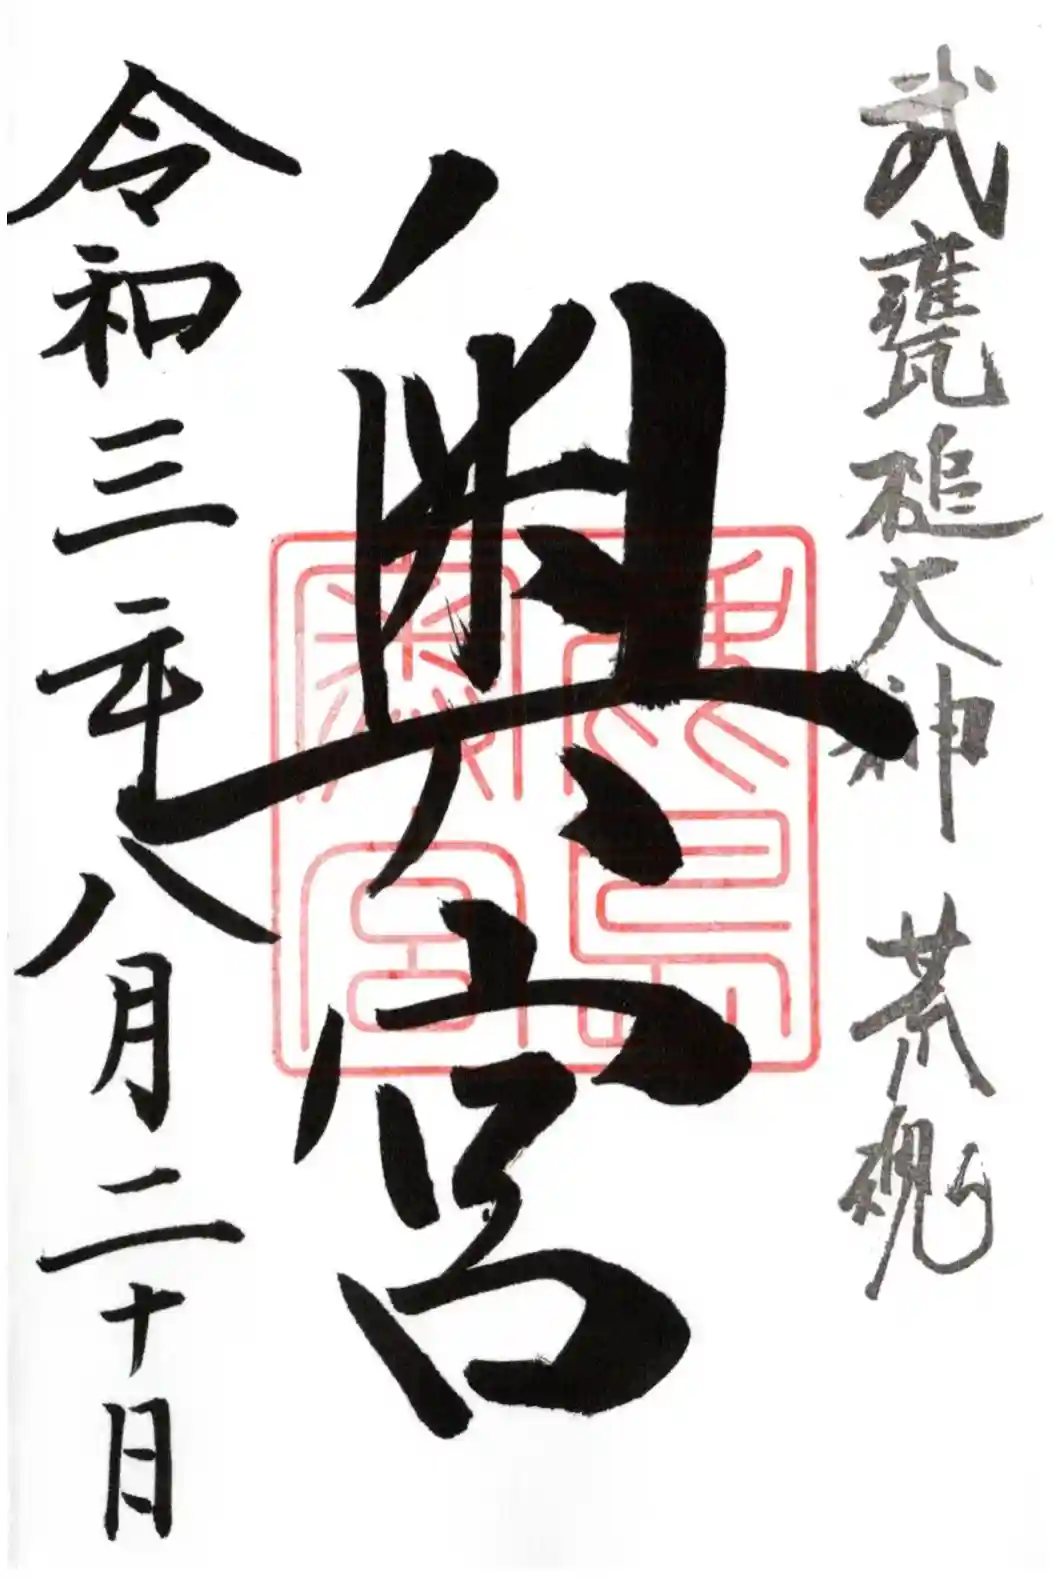 武甕槌大神 荒魂
奥宮
令和三年八月二十日
鹿島奥宮